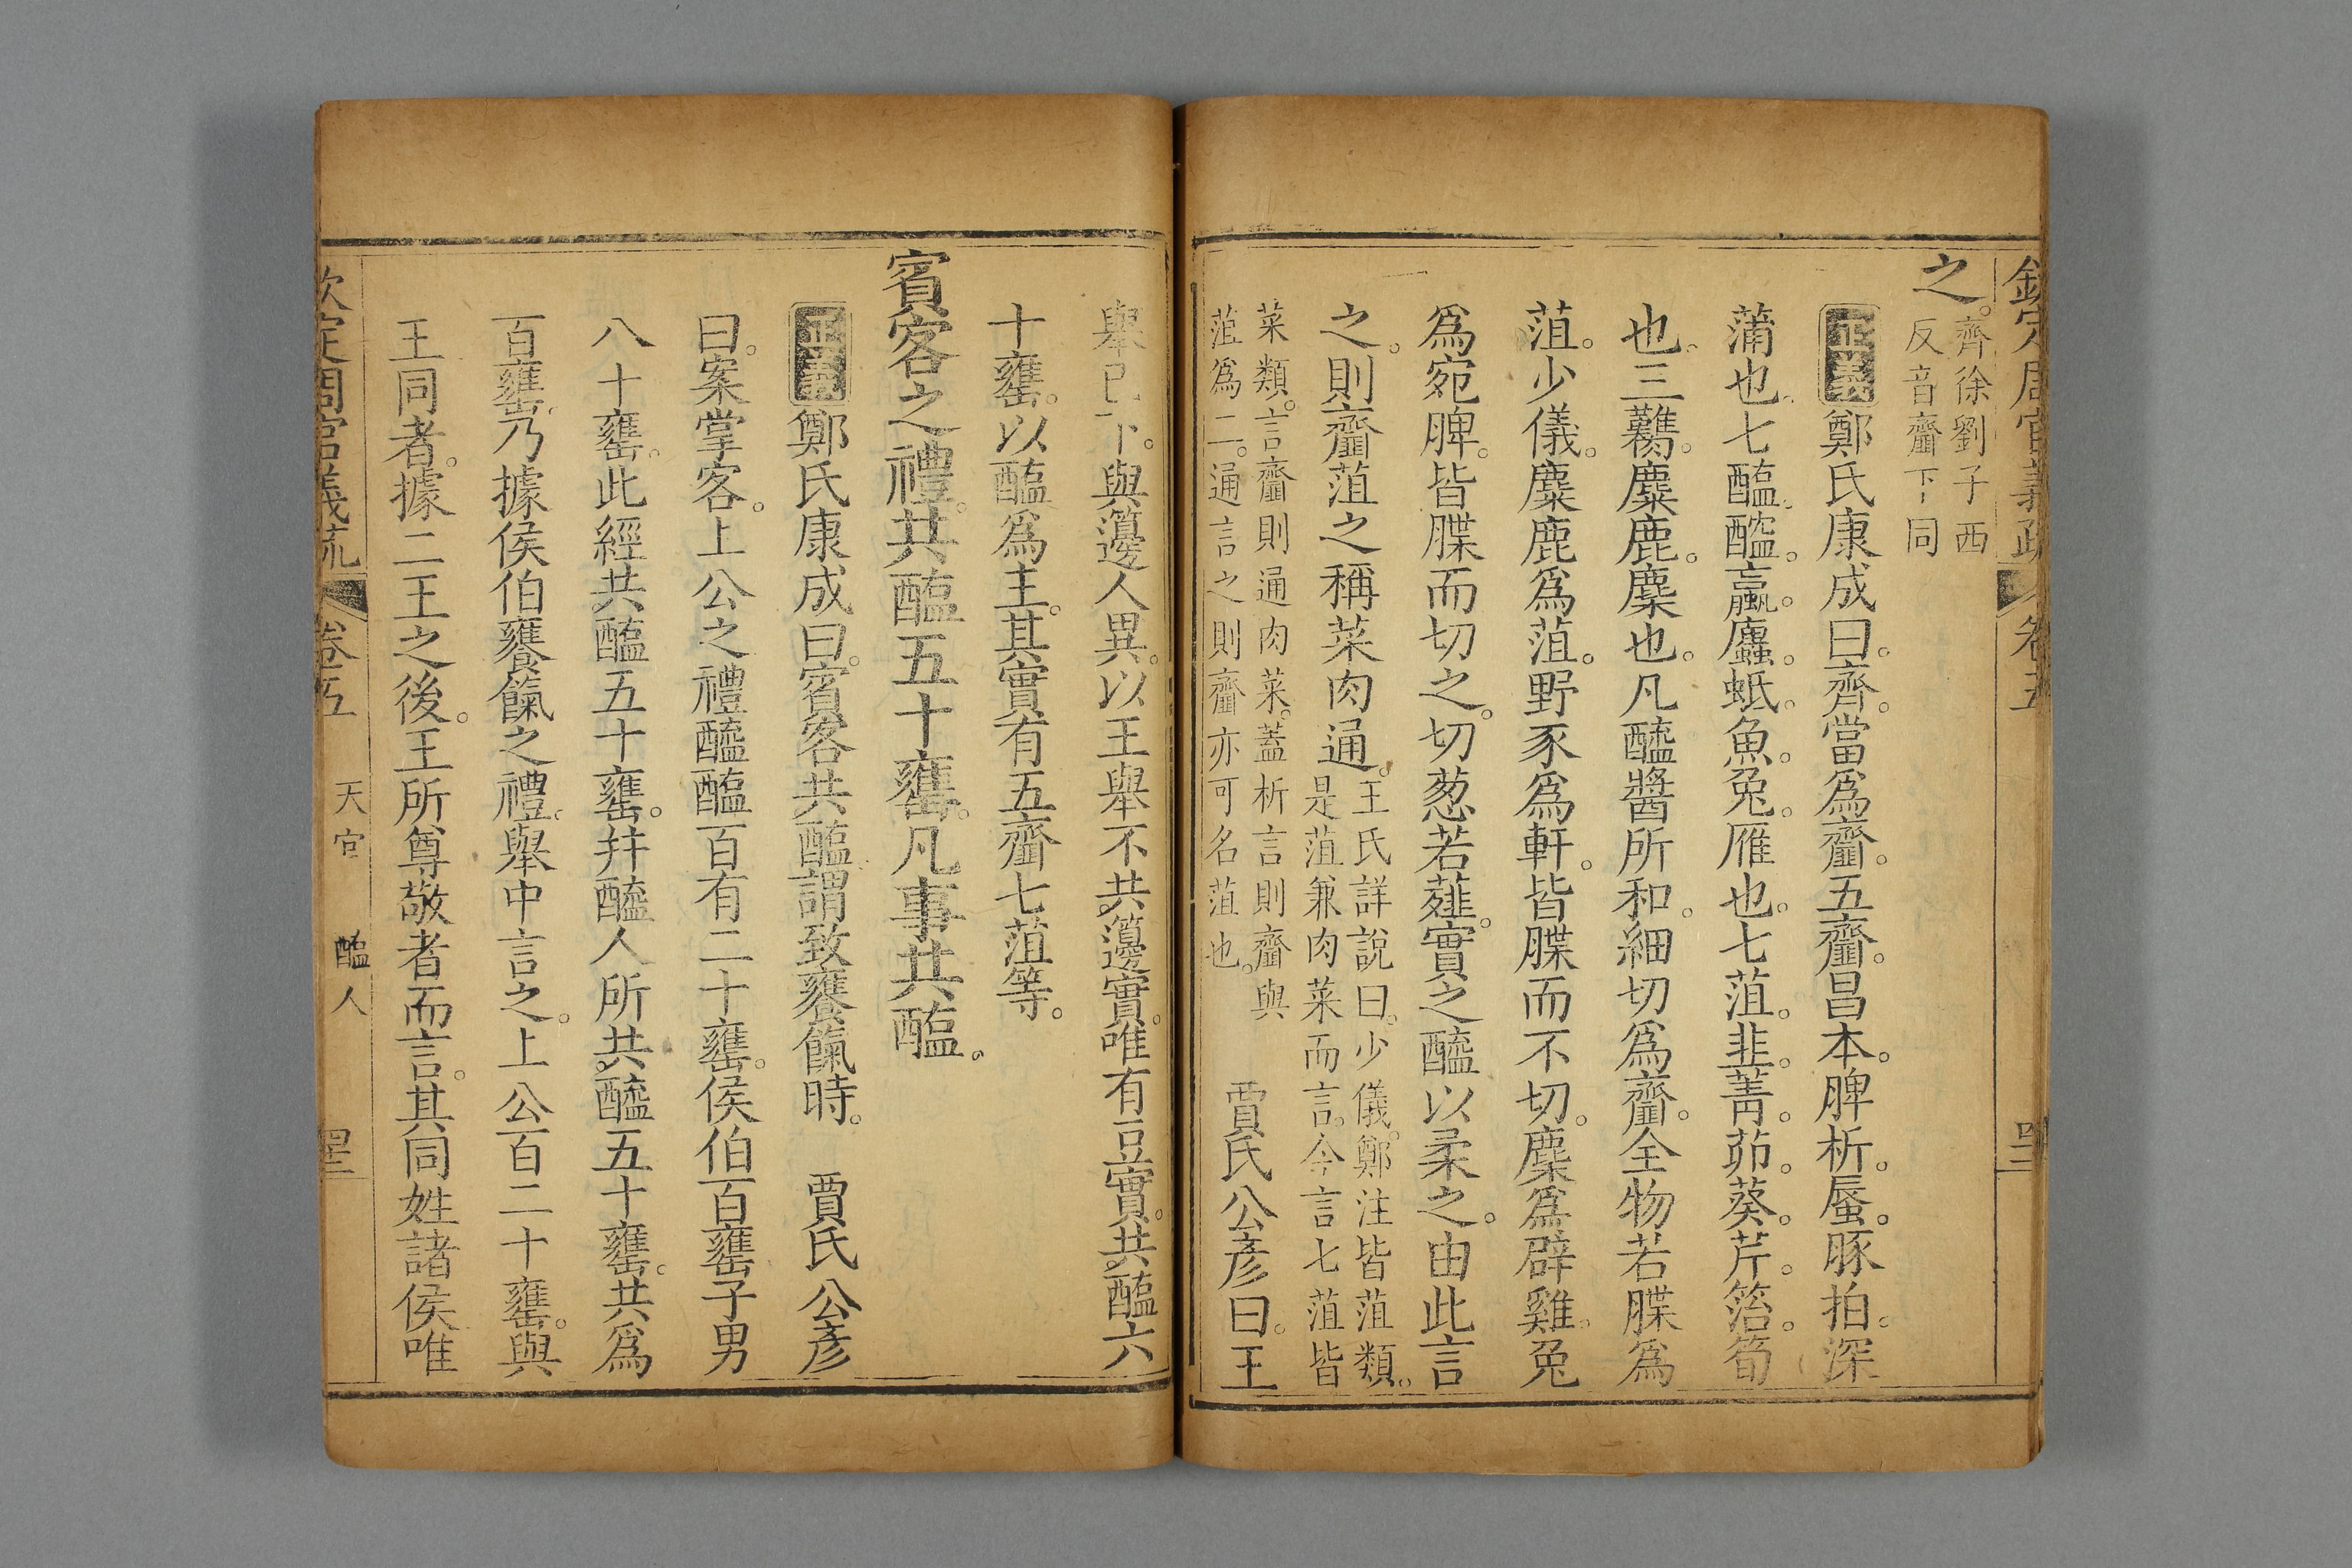 欽定周官義疏 卷五
之。齊徐劉子西
反音齏下同
正義鄭氏康成曰。齊。當爲齏。五齏。昌本。脾析。蜃。豚拍。深
蒲也。七醢。醓。蠃。蠯。蚳。魚。兔。雁也。七菹。韭。菁。茆。葵。芹。箈。筍
也。三臡。麋。鹿。麇也。凡醯醬所和。細切爲齏。全物若䐑爲
菹。少儀。麋鹿爲菹。野豕爲軒。皆䐑而不切。麇爲辟雞。兔
爲宛脾。皆䐑而切之。切葱若薤。實之醯以柔之。由此言
之。則齏菹之稱菜肉通。
王氏詳說曰。少儀。鄭注皆菹類。
是菹兼肉菜而言。今言七菹皆
菜類。言齏則通肉菜。蓋析言則齏與
菹爲二。通言之則齏亦可名菹也。
賈氏公彥曰。王
舉已下。與籩人異。以王舉不共籩實。唯有豆實。共醢六
十罋。以醢爲主。其實有五齏七菹等。
賓客之禮。共醢五十罋。凡事共醢。
正義鄭氏康成曰。賓客共醢。謂致饔餼時。 賈氏公彥
曰。案掌客。上公之禮醯醢百有二十罋。侯伯百罋子男
八十罋。此經共醢五十罋。幷醯人所共醯五十罋。共爲
百罋。乃據侯伯饔餼之禮。舉中言之。上公百二十罋。與
王同者。據二王之後。王所尊敬者而言。其同姓諸侯唯
欽定周官義疏 卷五 天官 醢人